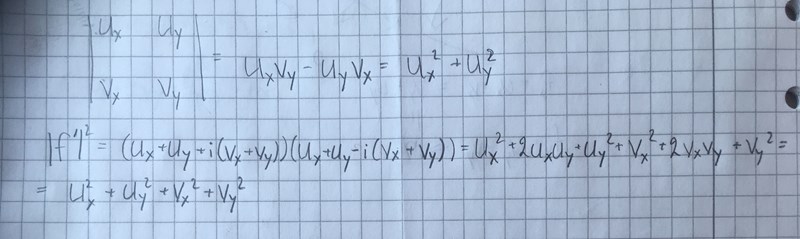 |Ux Uy|
|Vx Vy| = UxVy - UyVx = Ux² + Uy²
|f'|² = (Ux+Uy+i(Vx+Vy))(Ux+Uy-i(Vx+Vy)) = Ux²+2UxUy+Uy²+Vx²+2VxVy+Vy² =
= Ux² + Uy² + Vx² + Vy²